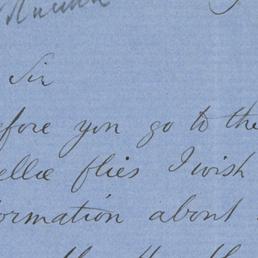 Sir
efore you go to the
ellæ flies I wish
ormation about